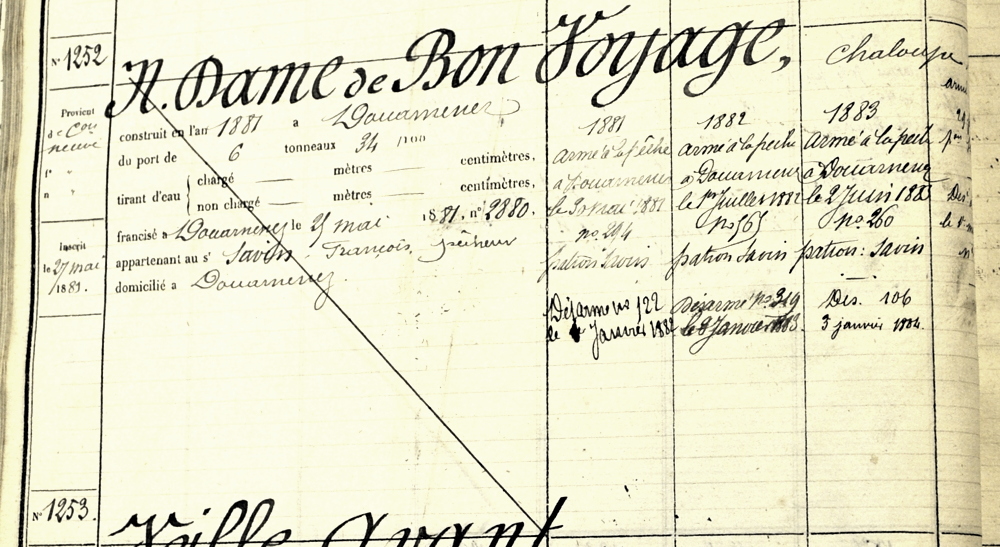 N° 1252
N. Dame de Bon Voyage, Chaloupe
Provient
de Con
neuve
f° "
n° "
Inscrit
le 27 mai
1881.
construit en l'an 1881 a Douarnenez
du port de 6 tonneaux 34 /100
tirant d'eau { chargé — mètres — centimètres,
non chargé — mètres — centimètres,
francisé a Douarnenez le 25 mai 1881. n° 2880.
appartenant au sr Savin François, pêcheur
domicilié a Douarnenez
1881
armé à la pêche
à Douarnenez
le 30 mai 1881
no 294
patron Savin
Désarmé no 122
le Janvier 188
1882
armé à la pêche
à Douarnenez
le 1er Juillet 1882
No 565
patron Savin
Désarmé no 319
le 8 Janvier 1883.
1883
Armé à la pech
à Douarnenez
le 2 Juin 1883
no. 260
patron: Savin
Dés. 106
3 janvier 1884.
armé
Dés
N° 1253.
Ville Avant